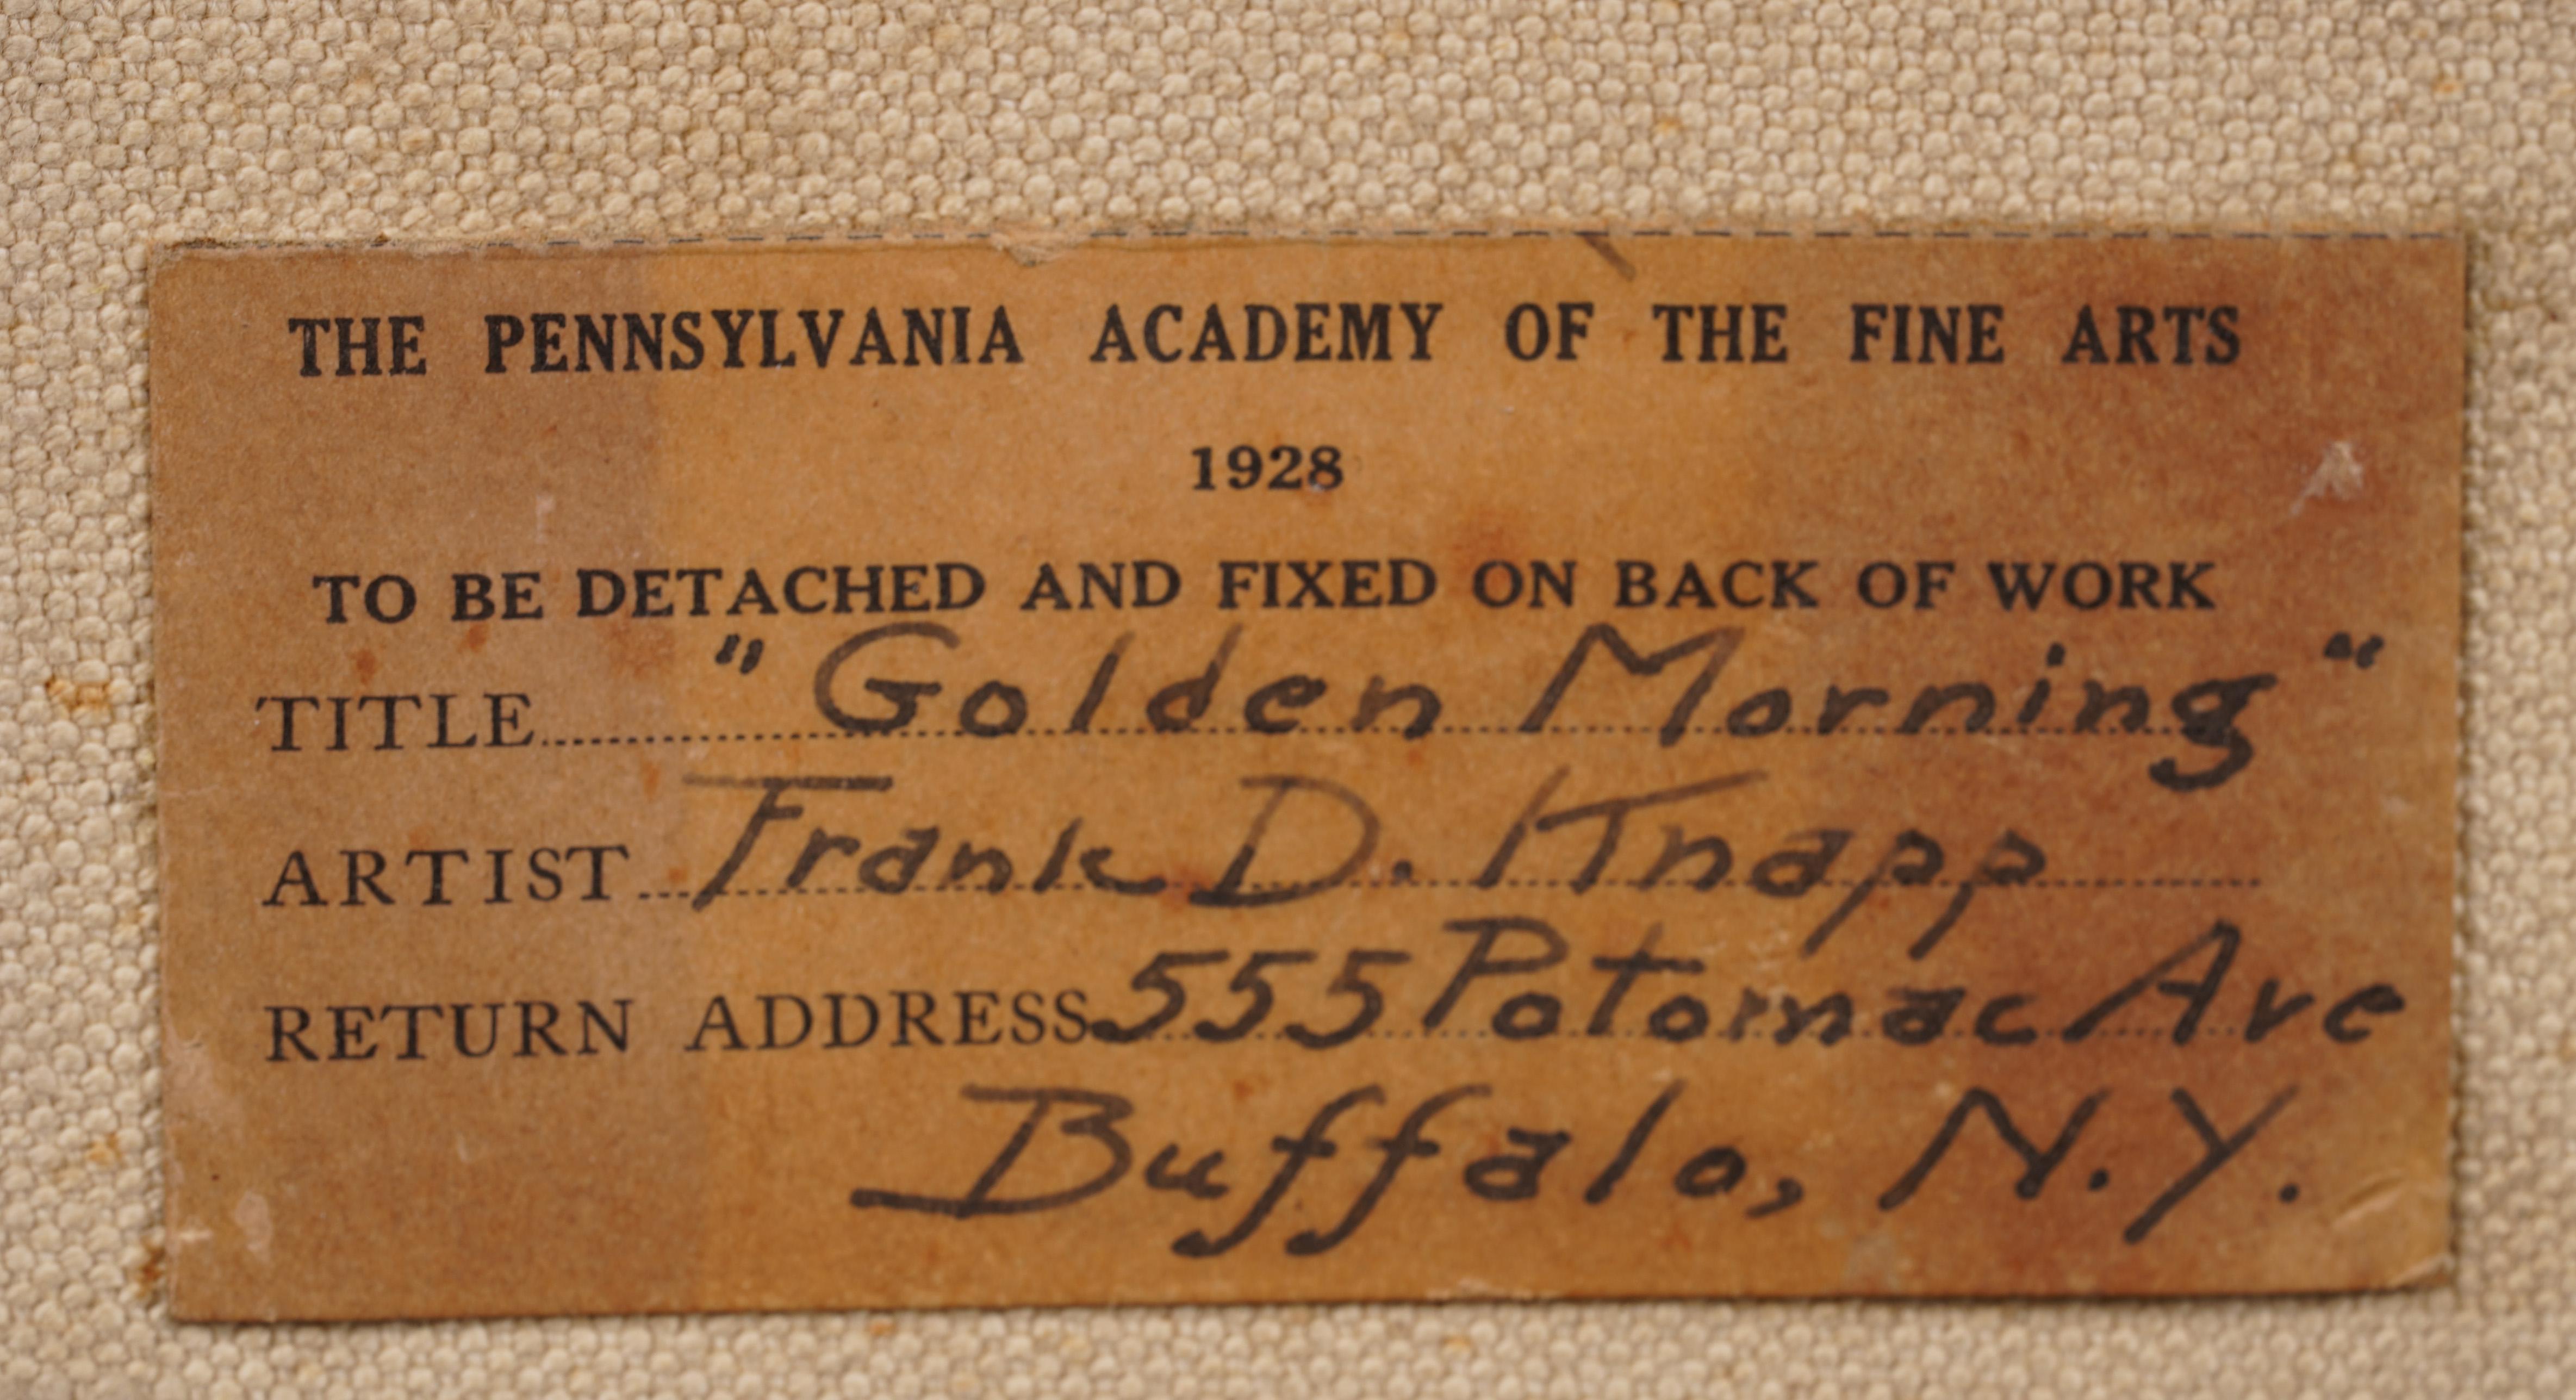 THE PENNSYLVANIA ACADEMY OF THE FINE ARTS
1928
TO BE DETACHED AND FIXED ON BACK OF WORK
TITLE "Golden Morning"
ARTIST Frank D. Knapp
RETURN ADDRESS 555 Potomac Ave
Buffalo, N.Y.